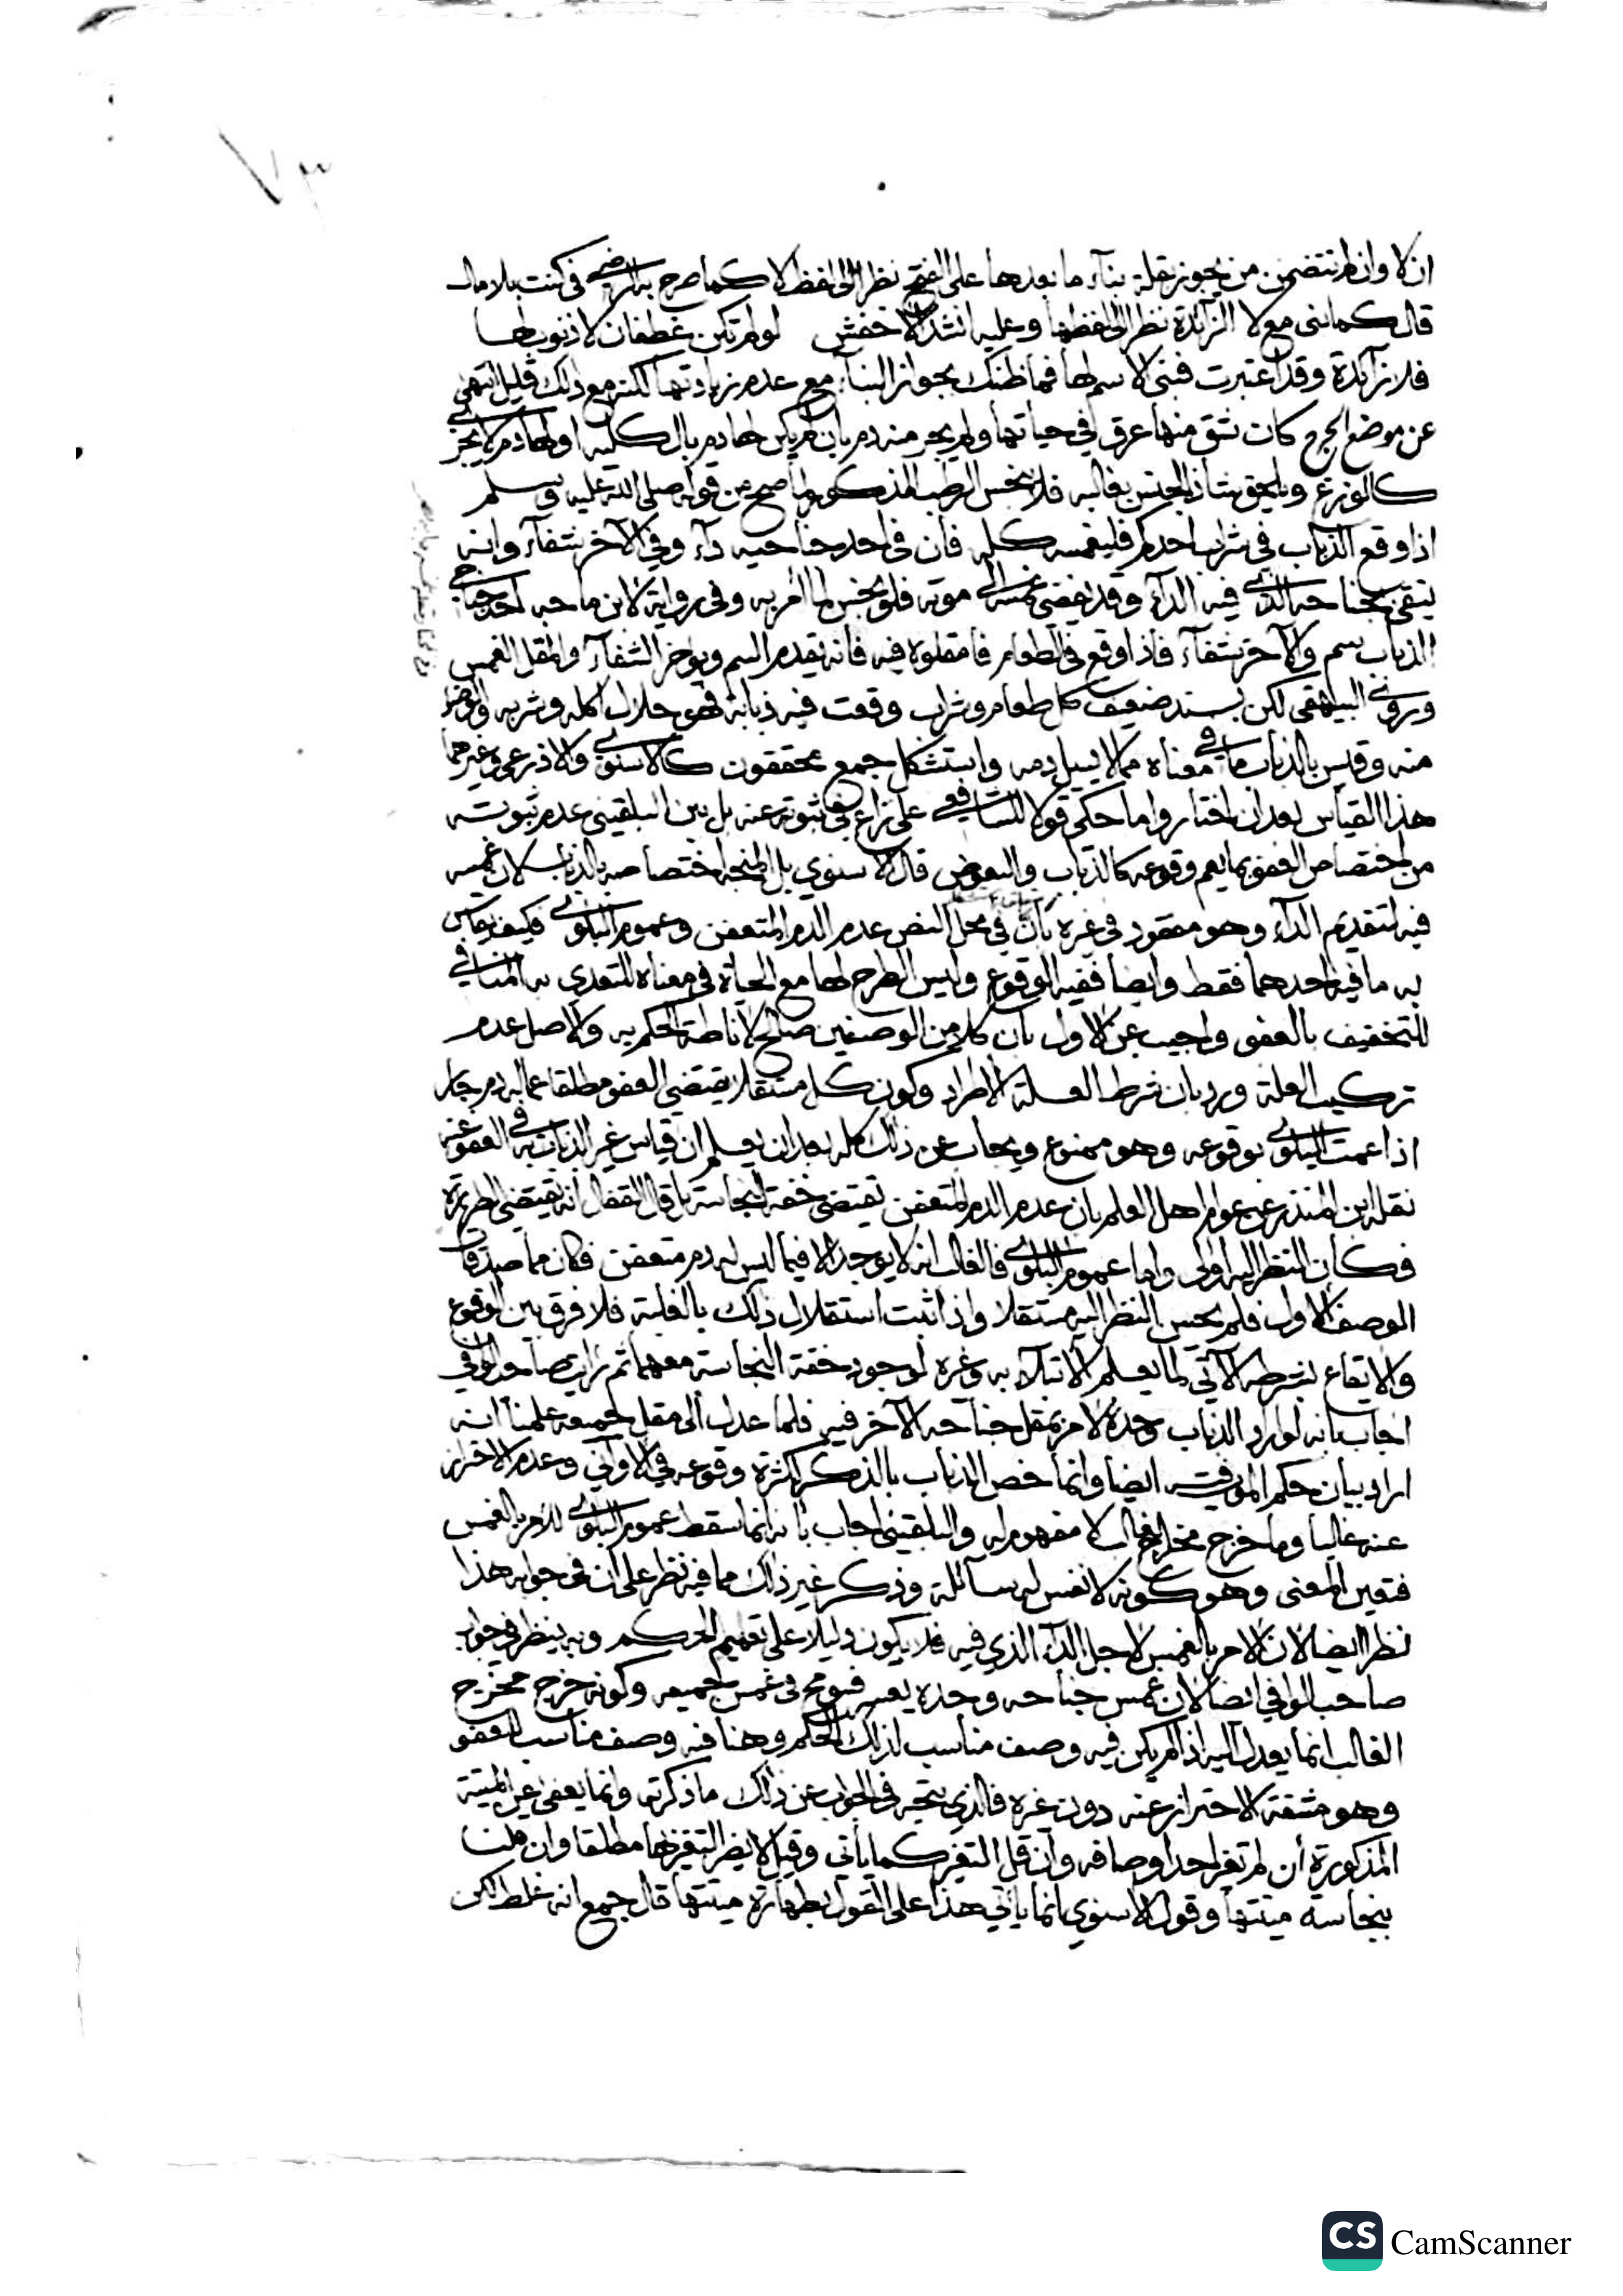 ٧٣
ان لا وان لم تتضمن من يجوز بقلة بناء ما بعدها على الفتح نظرا الى لفظ لا كما صرح به الرضي في كنت بلا مال
قال كما بنى مع لا الزائدة نظرا الى لفظها وعليه انشد الاخفش لو لم تكن غطفان لا ذنوب لها
فلا زائدة وقد اعتبرت فبنى الاسم لها فما ظنك بجواز البناء مع عدم زيادتها لكنه مع ذلك قليل انتهى
عن موضع الجرح كان شق منها عرق في حياتها ولم يجر منه دم بان لم يكن لها دم بالكلية او لها دم لا يجري
كالوزغ ويلحق شاذ الجنس بغالبه فلا ينجس الرطب المذكور لما صح من قوله صلى الله عليه وسلم
اذا وقع الذباب في شراب احدكم فليغمسه كله فان في احد جناحيه داء وفي الآخر شفاء وانه
يتقي بجناحه الذي فيه الداء وقد يفضي غمسه الى موته فلو نجس لما امر به وفي رواية لابن ماجه احد جناحي
الذباب سم والآخر شفاء فاذا وقع في الطعام فامقلوه فيه فانه يقدم السم ويؤخر الشفاء والمقل الغمس
وروى البيهقي لكن بسند ضعيف كل طعام وشراب وقعت فيه ذبابة فهو حلال اكله وشربه والوضوء
منه وقيس بالذباب ما في معناه مما لا يسيل دمه واستشكل جمع محققون كالاسنوي والاذرعي وغيرهما
هذا القياس بعد ان اختاروا ما حكي قولا للشافعي على نزاع في ثبوته عنه بل بين البلقيني عدم ثبوته
من اختصاص العفو بما يعم وقوعه كالذباب والبعوض قال الاسنوي بل المتجه اختصاصه بالذباب لان غمسه
فيه لتقديم الداء وهو مفقود في غيره بان في محل النص عدم الدم المتعفن وعموم البلوى فكيف يقاس
به ما فيه احدهما فقط وايضا ففيه الوقوع وليس الطرح لها مع الحياة في معناه للتعدي به المنافي
للتخفيف بالعفو واجيب عن الاول بان كلا من الوصفين صالح لاناطة الحكم به والاصل عدم
تركيب العلة ورد بان شرط العلة الاطراد وكون كل مستقلا يقتضي العفو مطلقا عما له دم جار
اذا عمت البلوى بوقوعه وهو ممنوع ويجاب عن ذلك كله بعد ان يعلم ان قياس غير الذباب به في العفو عنه
نقله ابن المنذر عن عوام اهل العلم بان عدم الدم المتعفن يقتضي خفة النجاسة بل قال القفال انه يقتضي الطهارة
فكان النظر اليه اولى واما عموم البلوى فالغالب انه لا يوجد الا فيما ليس له دم متعفن فكان مما صدقات
الوصف الاول فلم يحسن النظر اليه مستقلا واذا ثبت استقلال ذلك بالغلبة فلا فرق بين الوقوع
والايقاع بشرطه الآتي لما يعلم الابتلاء به وغيره لوجود خفة النجاسة معهما ثم رايت صاحب الوافي
اجاب بانه لو اراد الذباب وحده لامر بمقل جناحه الآخر فيه فلما عدل الى مقل جميعه علمنا انه
اراد بيان حكم الموت فيه ايضا وانما خص الذباب بالذكر لكثرة وقوعه في الاواني وعدم الاحتراز
عنه غالبا وما خرج مخرج الغالب لا مفهوم له والبلقيني اجاب بانه انما سقط عموم البلوى للامر بالغمس
فتعين المعنى وهو كونه لا نفس له سائلة وذكر غير ذلك مما فيه نظر على ان في جوابه هذا
نظرا ايضا لان الامر بالغمس لاجل الداء الذي فيه فلا يكون دليلا على تعميم الحكم وبه ينظر في جواب
صاحب الوافي ايضا لان غمس جناحه وحده يعسر فسومح في غمس جميعه وكونه خرج مخرج
الغالب انما يعدل اليه اذا لم يكن فيه وصف مناسب لذلك الحكم وهنا فيه وصف مناسب للعفو
وهو مشقة الاحتراز عنه دون غيره فالذي يتجه في الجواب عن ذلك ما ذكرته وانما يعفى عن الميتة
المذكورة ان لم تغير احد اوصافه وان قل التغير كما ياتي وقيل لا يضر التغير بها مطلقا وان قلنا
بنجاسة ميتتها وقول الاسنوي انما ياتي هذا على القول بطهارة ميتتها قال جمع انه غلط لكن
CS CamScanner